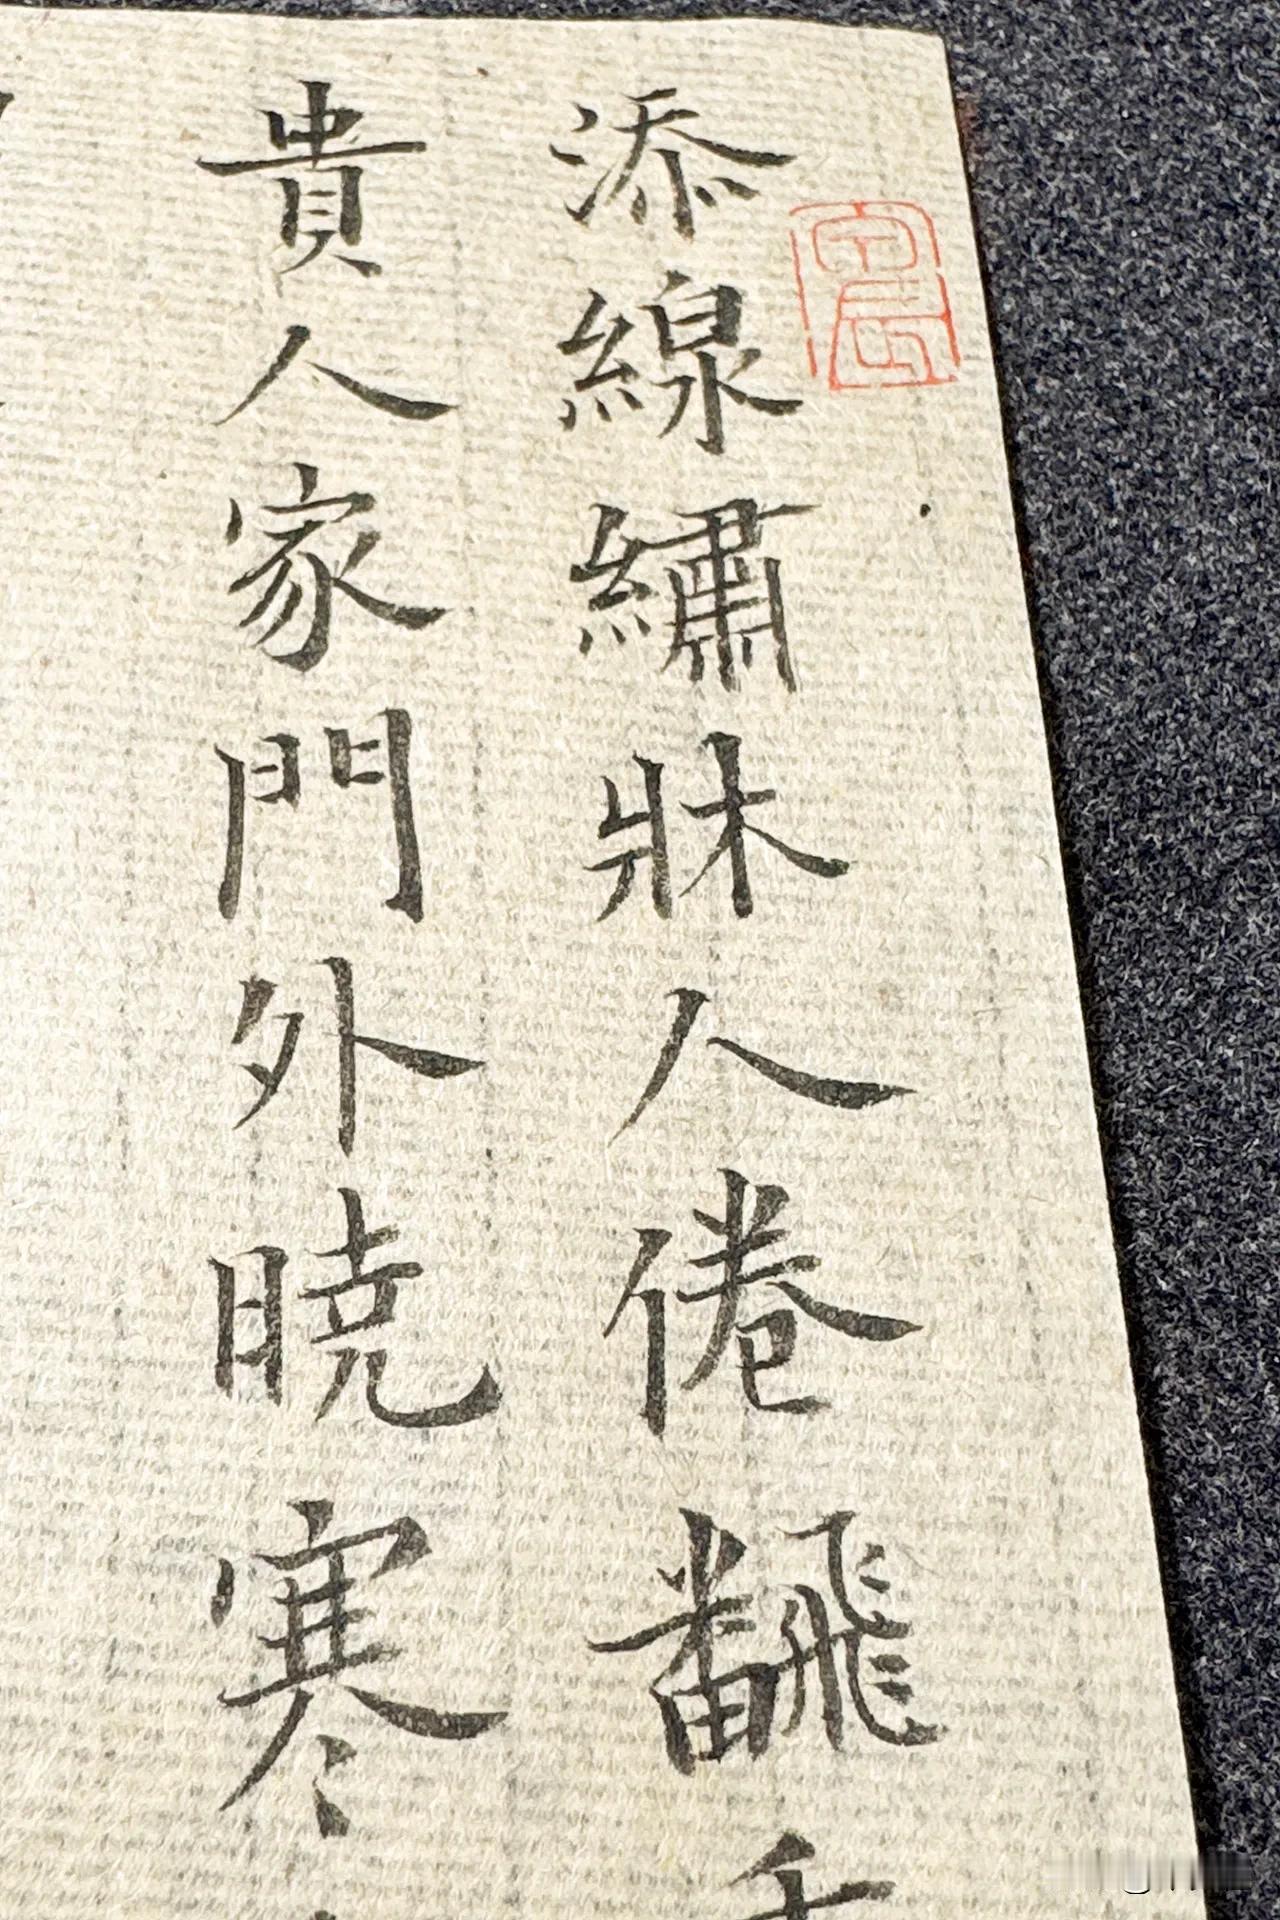 添線繡牀人倦飜
貴人家門外曉寒